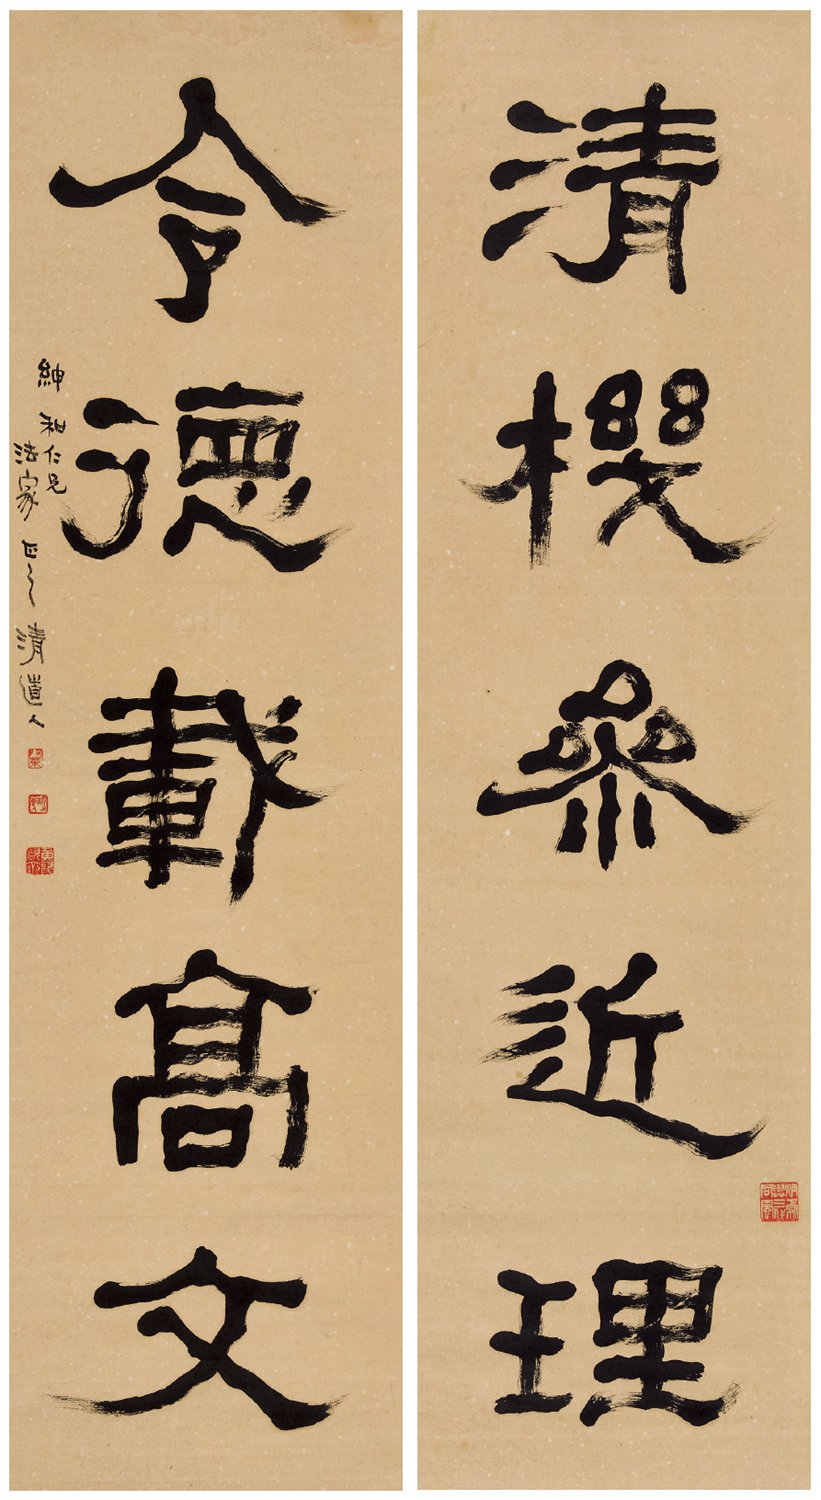 清機參近理
令德載高文
紳和仁兄
法家正之 清道人